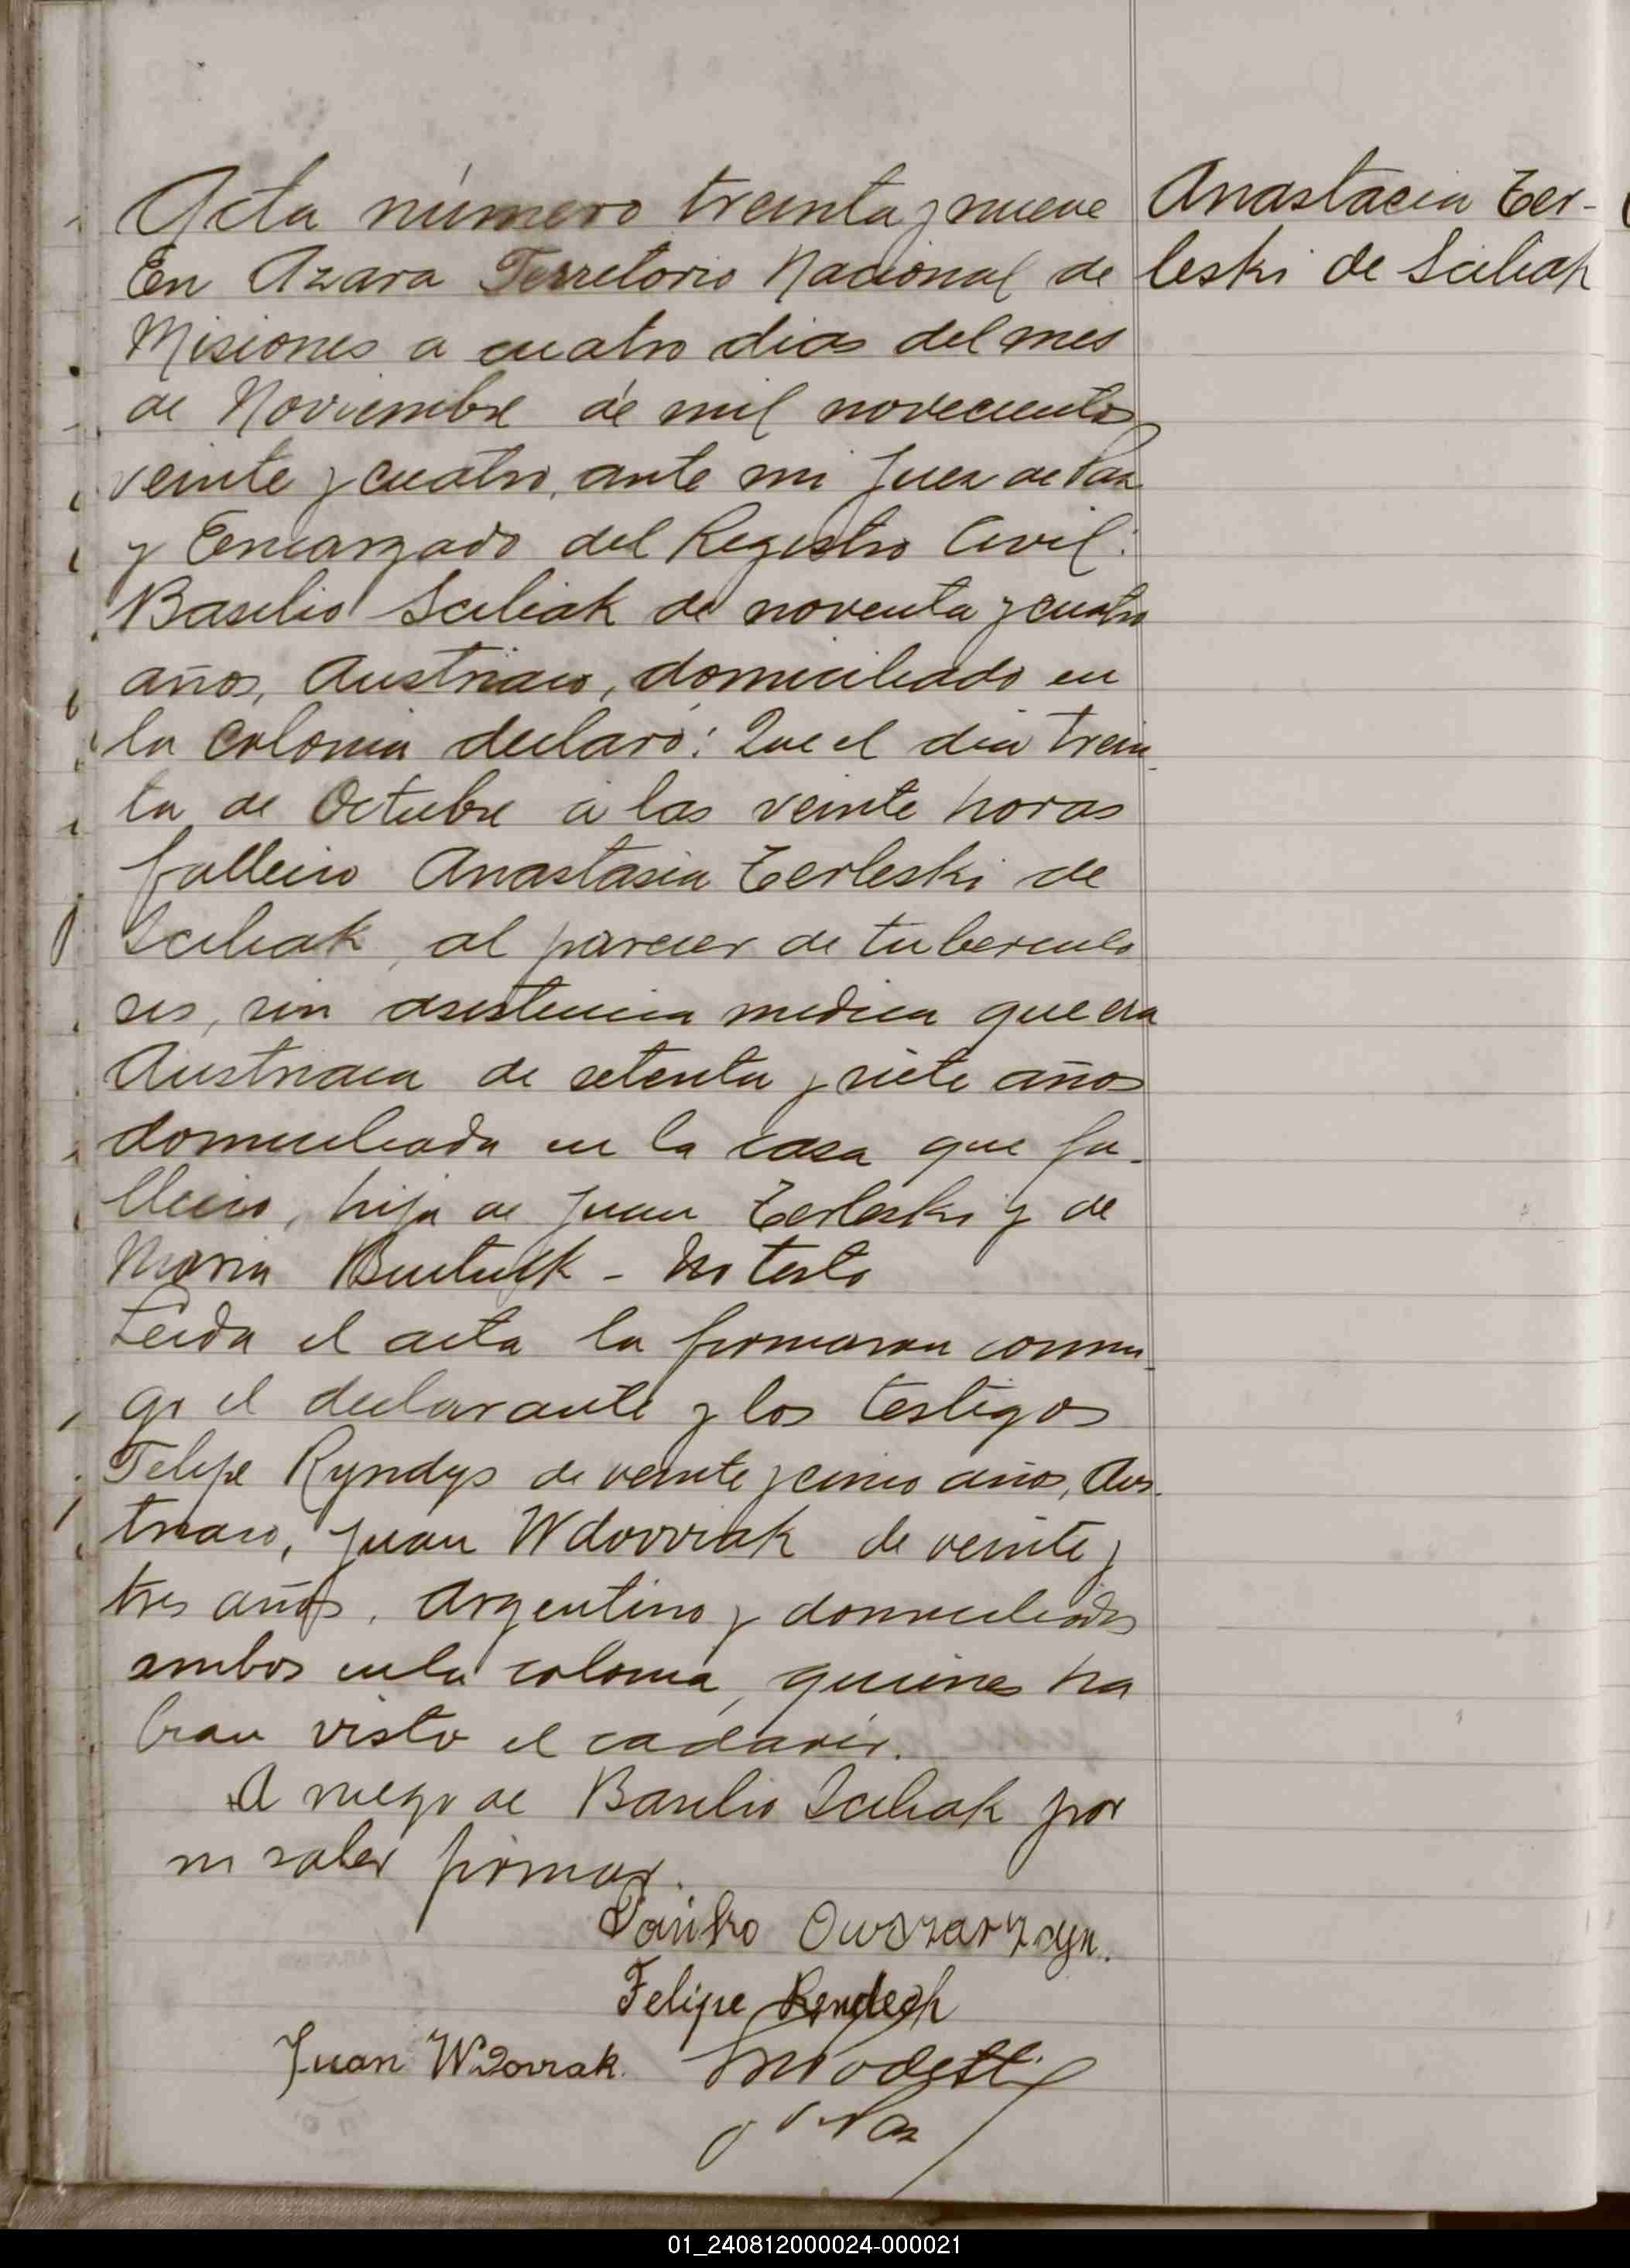 Acta número treinta y nueve
Anastacia Ter-
leski de Sciliak
En Azara Territorio Nacional de
Misiones a cuatro dias del mes
de Noviembre de mil novecientos
veinte y cuatro, ante mi Juez de Paz
y Encargado del Registro Civil:
Basilio Sciliak de noventa y cuatro
años, Austriaco, domiciliado en
la colonia declaró: Que el dia trein
ta de Octubre a las veinte horas
fallecio Anastasia Terleski de
Sciliak, al parecer de tuberculo
sis, sin asistencia medica que era
Austriaca de setenta y siete años
domiciliada en la casa que fa-
llecio, hija de Juan Terleski y de
Maria - No testo
Leida el acta la firmaron conmi
go el declarante y los testigos
Felipe Ryndys de veinte y cinco años, Aus
triaco, Juan Wdovviak de veinte y
tres años, Argentino y domiciliados
ambos en la colonia, quienes ha
bian visto el cadaver.
A ruego de Basilio Sciliak por
no saber firmar.
Felipe
Juan Wdovviak.
J. de Paz
01_240812000024-000021